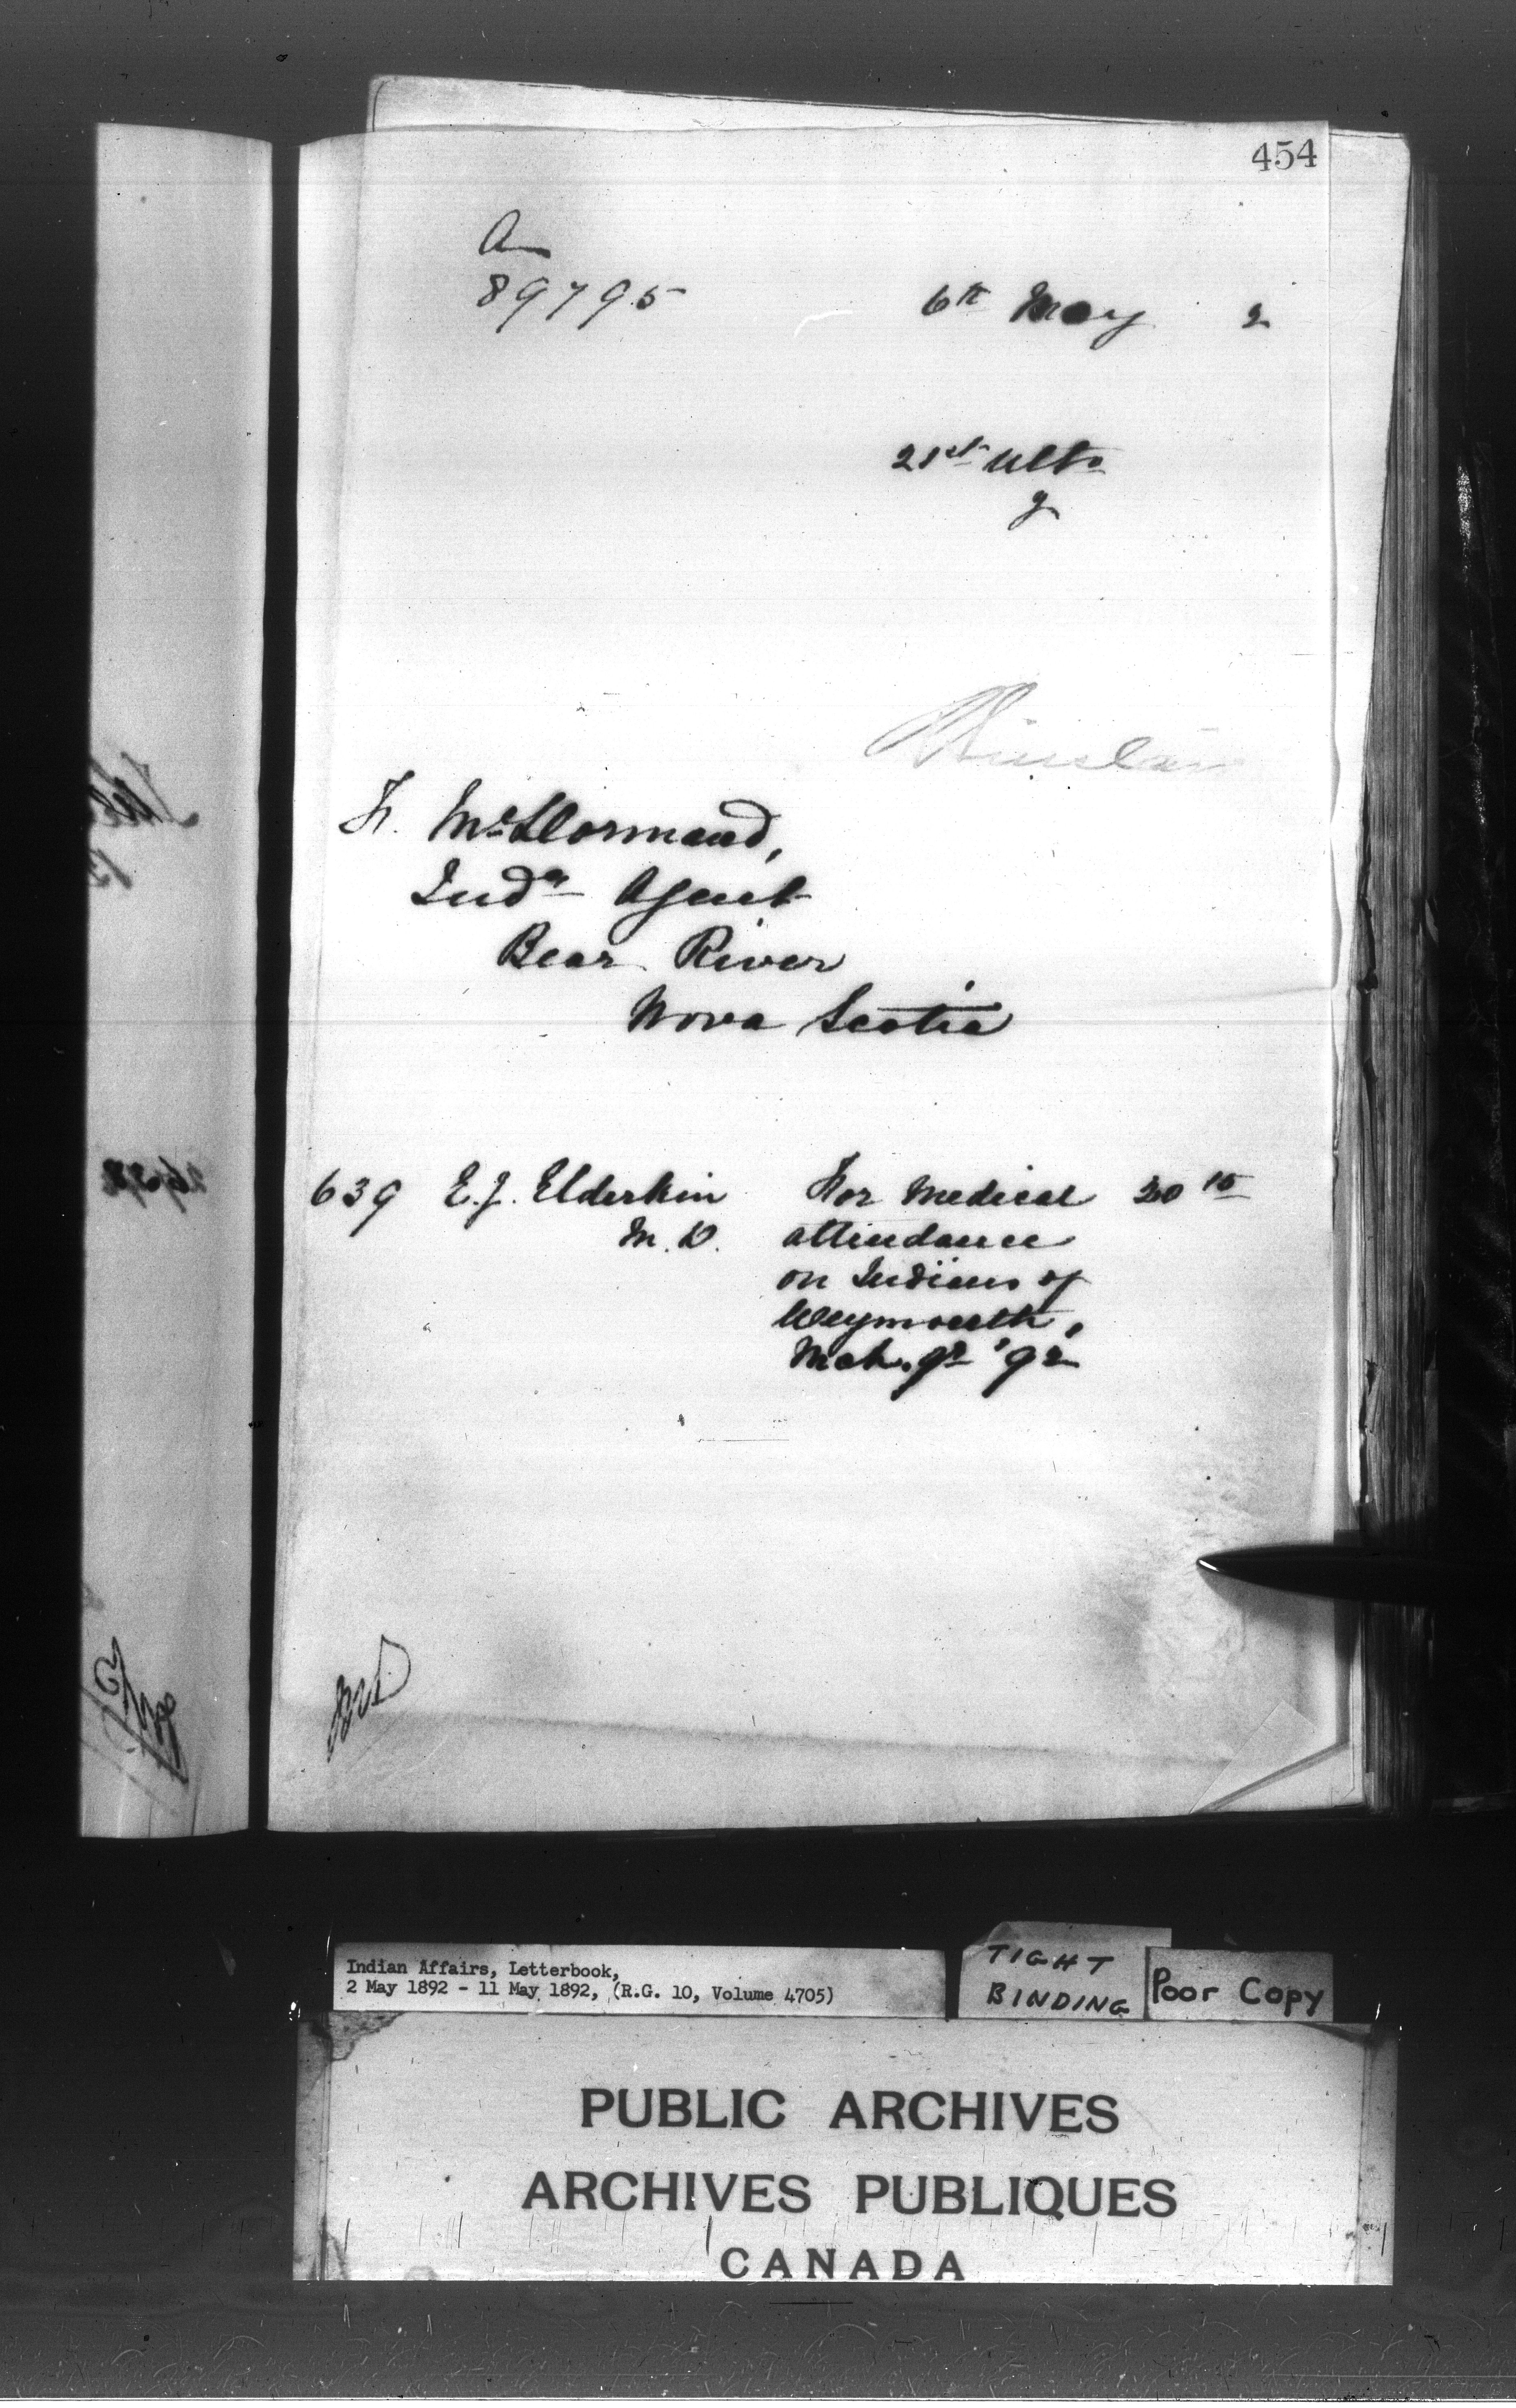 454
A
89795
6th May 2
21st ulto
y
F. McDormand,
Indn Agent
Bear River
Nova Scotia
639 E.J. Elderkin For Medical 20 10
M.D. attendance
on Indians of
Weymouth,
Mch. qr '92
Indian Affairs, Letterbook,
2 May 1892 - 11 May 1892, (R.G. 10, Volume 4705)
TIGHT
BINDING
Poor Copy
PUBLIC ARCHIVES
ARCHIVES PUBLIQUES
CANADA